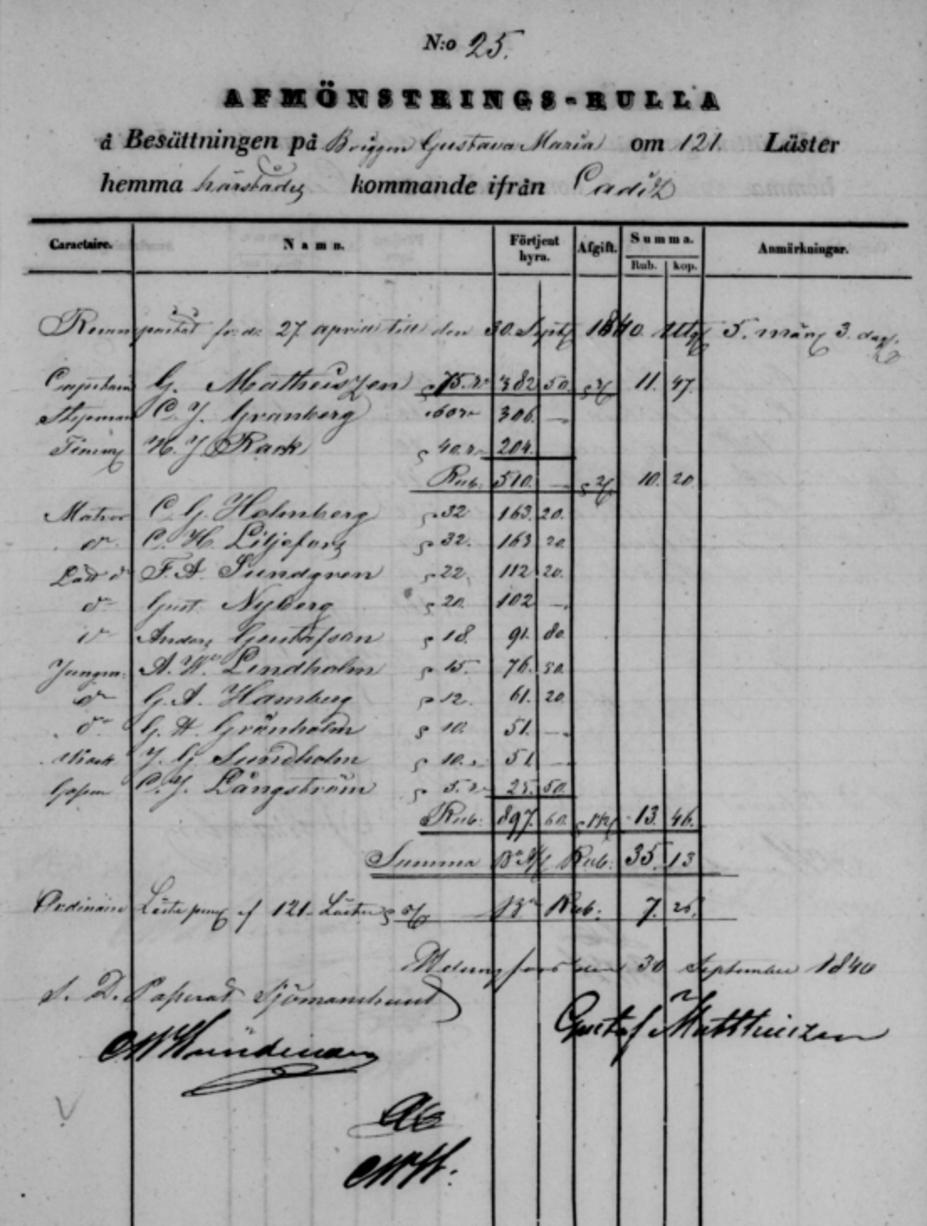 N:o 25.
AFMÖNSTRINGS-RULLA
å Besättningen på Briggen Gustava Maria om 121. Läster
hemma härstädes kommande ifrån Cadiz
Caractaire. Namn. Förtjent hyra. Afgift. Summa. Anmärkningar.
Rub. kop.
för de 27 april till den 30. Sept 1840. 5. mån 3. dag.
Capitain G. Matheiszen 75. 382 50. 11. 47.
Styrman C. J. Granberg 60 306. —
H. J. Rack 40. 204.
Rub: 510. — 10. 20.
Matros C. G. Holmberg 32 163. 20.
d:o C. H. Liljefors 32. 163 20
F. A. Sundgren 22. 112 20.
d:o Gust. Nyberg 20. 102 —
d:o Anders Gustafson 18. 91. 80.
Jungm: A. W. Lindholm 15. 76. 50.
d:o G. A. Hamberg 12. 61. 20.
d:o G. H. Grönholm 10. 51. —
J. G. Sundholm 10. 51 —
C. J. Långström 5. 25. 50.
Rub: 897. 60. 13. 46.
Summa Rub: 35. 13
Ordinaire af 121. Läster Rub: 7. 26.
Helsingfors den 30 September 1840
S. D. Sjömanshuset
Gustaf Mattheiszen